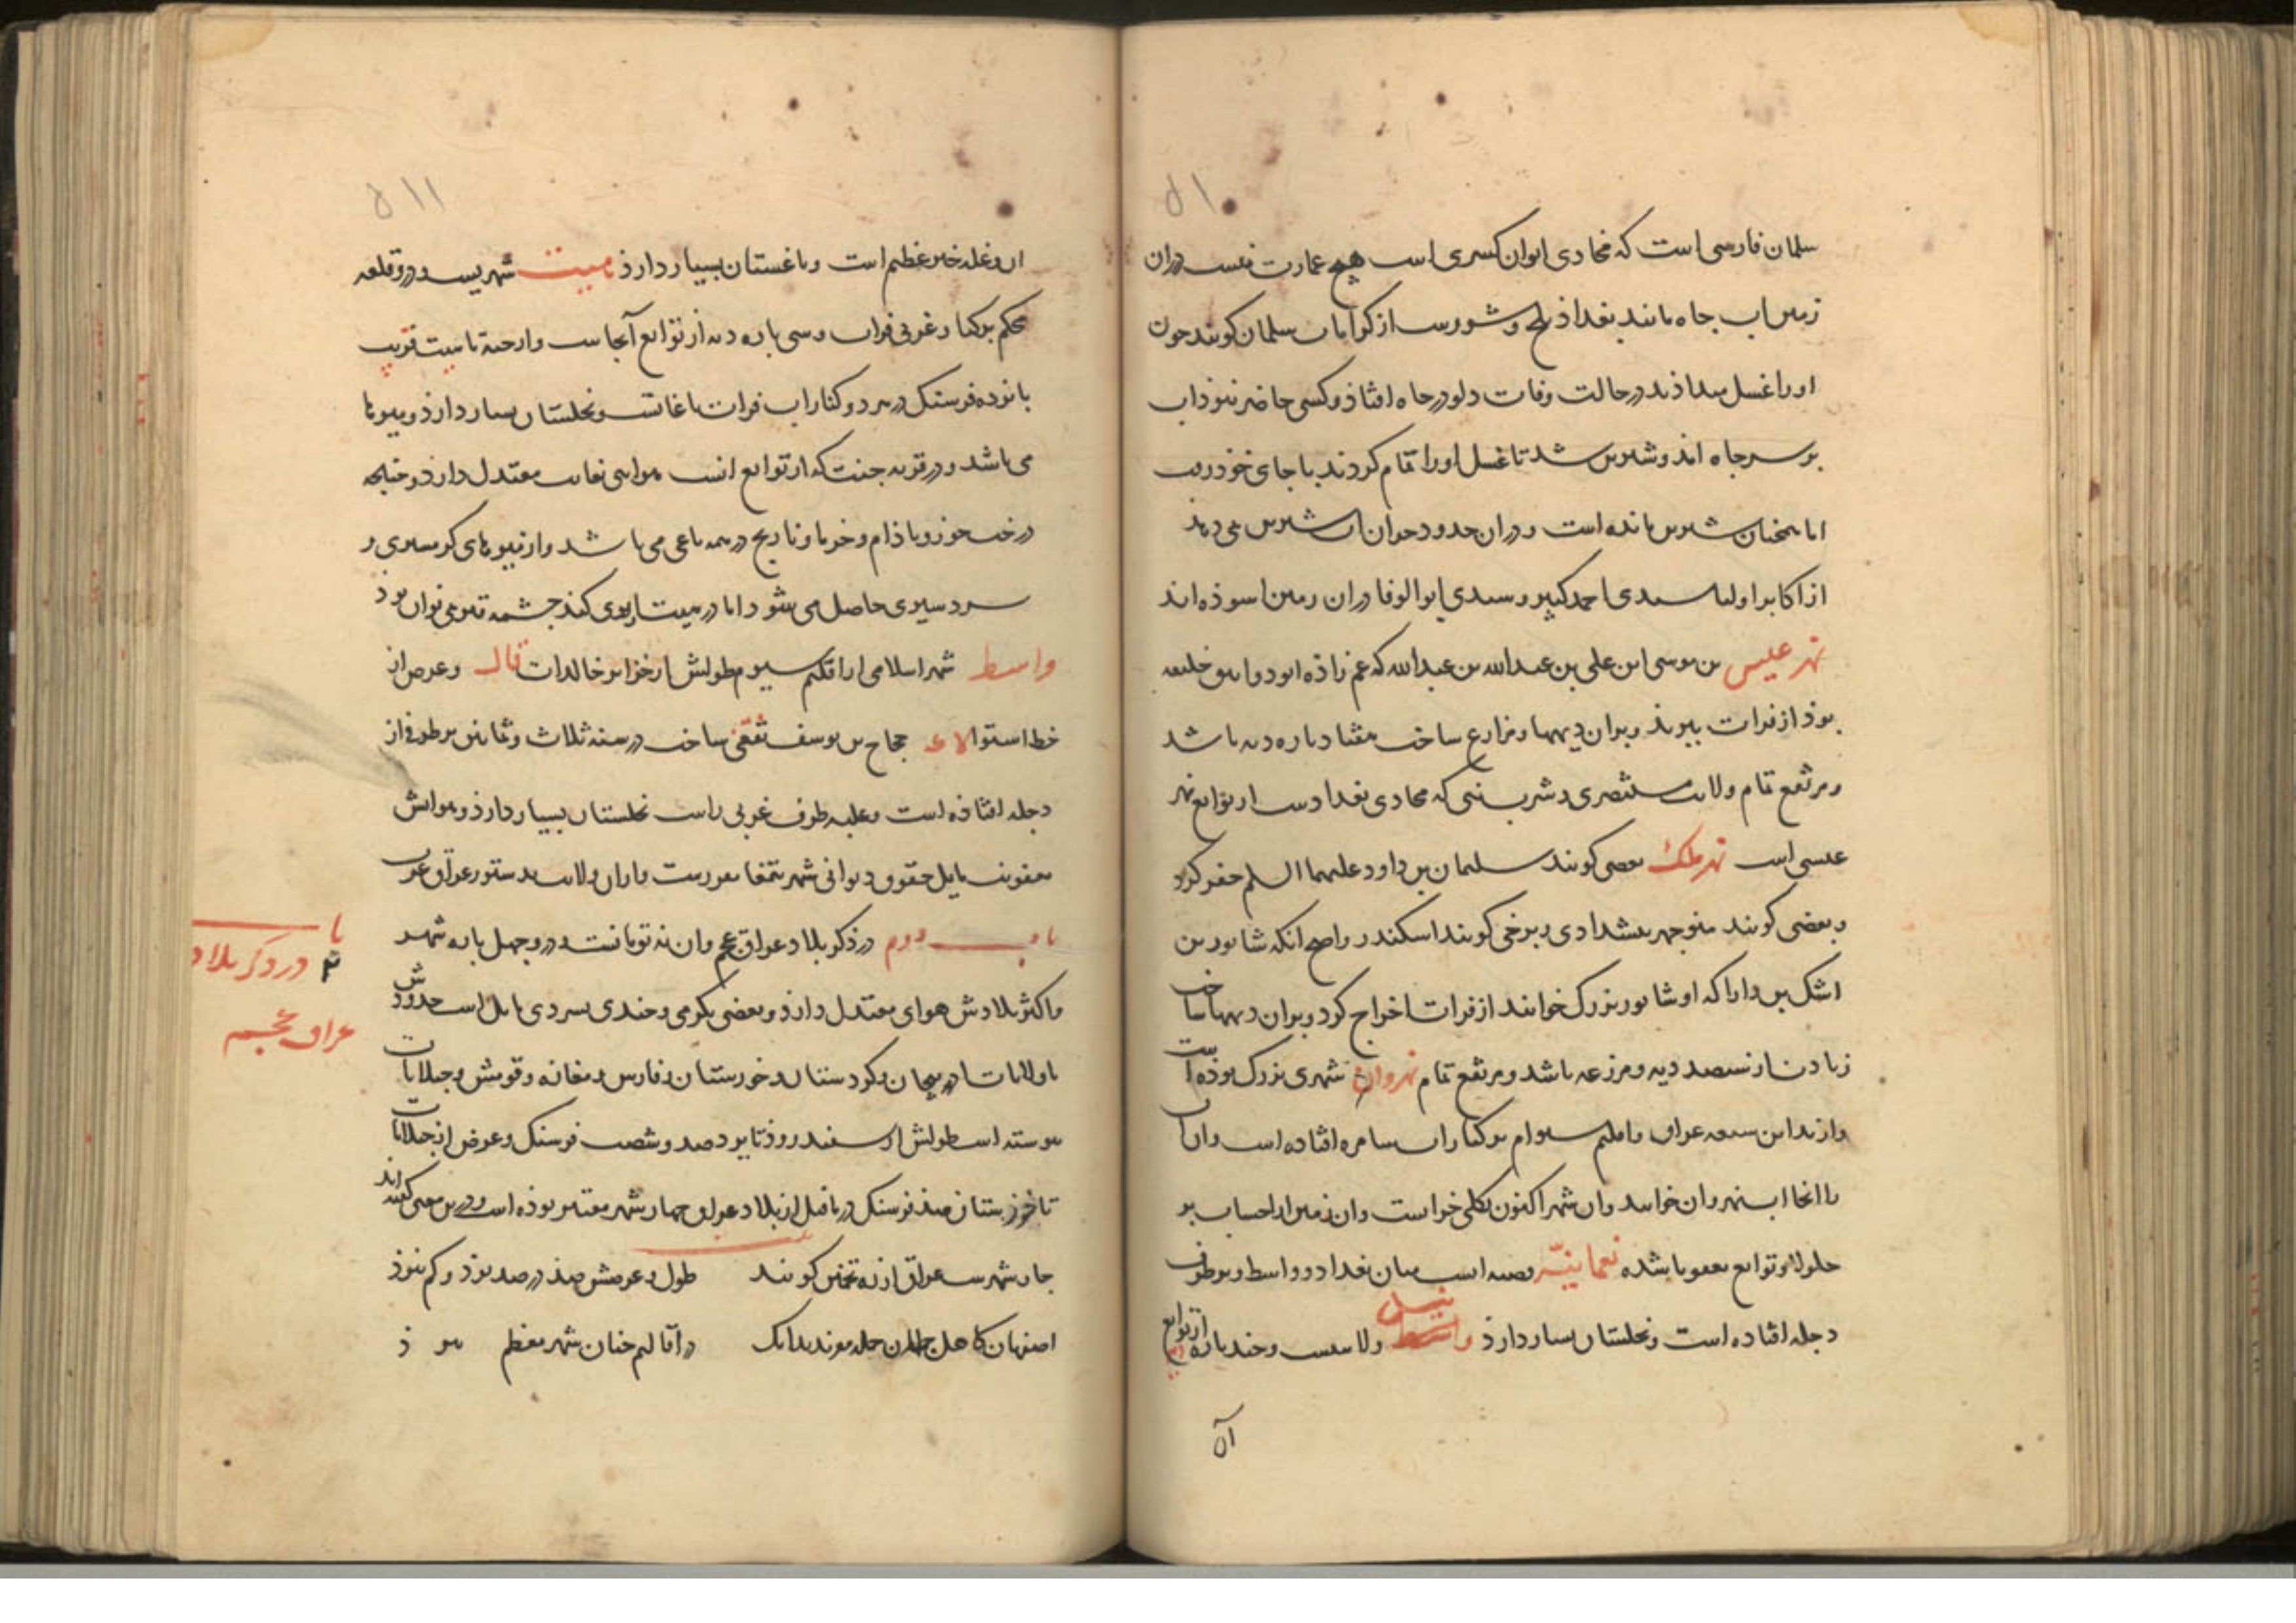 ۵۱۰
سلمان فارسی است که محاذی ایوان کسری است هیچ عمارت نیست در آن
زمین آب چاه مانند بغداد تلخ و شورست از کرامات سلمان گویند چون
او را غسل میدادند در حالت وفات دلو در چاه افتاد و کسی حاضر نبوذ آب
بر سر چاه آمد و شیرین شد تا غسل او را تمام کردند با جای خوذ رفت
اما همچنان شیرین مانده است و در آن حدود حیوان آب شیرین می دهند
از اکابر اولیا سیدی احمد کبیر و سیدی ابو الوفا در آن زمین آسوذه اند
نهر عیسی بن موسی ابن علی بن عبد الله بن عبد الله که عم زاذه ابو دوانیق خلیفه
بوذ از فرات ببرید و بر آن دیهها و مزارع ساخت هفتاد پاره دیه باشد
و مرتفع تمام ولایت مستنصری و شرب که محاذی بغدادست از توابع نهر
عیسی است نهر ملک بعضی گویند سلیمان بن داود علیهما السلم حفر کرد
و بعضی گویند منوچهر پیشدادی و برخی گویند اسکندر و اصح آنکه شابور بن
اشک بن دارا که او شابور بزرگ خوانند از فرات اخراج کرد و بر آن دیهها ساخت
زیادت از سیصد دیه و مزرعه باشد و مرتفع تمام نهروان شهری بزرگ بوذه است
و از مداین سبعه عراق و اقلیم سیوم بر کنار آب سامره افتاده است و آن آب
را آنجا آب نهروان خوانند و آن شهر اکنون بکلی خرابست و آن زمین از حساب بر
جلولا و توابع بعقوبا شده نعمانیه قصبه است میان بغداد و واسط و بر طرف
دجله افتاده است و نخلستان بسیار دارذ واسط نیل ولایتیست و چند پاره دیه از توابع
آن
۵۱۱
آن و غله خیز عظیم است و باغستان بسیار دارذ هیت شهریست و درو قلعه
محکم بر کنار غربی فرات و سی پاره دیه از توابع آنجاست و از جبه تا هیت قریب
پانزده فرسنگ در هر دو کنار آب فرات باغاتست و نخلستان بسیار دارذ و میوها
می باشد و در قریه جبت که از توابع آنست هوایی بغایت معتدل دارذ و چنانچه
درخت جوز و باذام و خرما و نارنج در همه باغی می باشد و از میوهای گرمسیری و
سردسیری حاصل می شود اما در هیت از بوی گند چشمه قیر نمی توان بود
واسط شهر اسلامی از اقلیم سیوم طولش از خزایر خالدات فال و عرض از
خط استوا لاعه حجاج بن یوسف ثقفی ساخت در سنه ثلاث و ثمانین بر طرف از
دجله افتاذه است و غلبه طرف غربی راست نخلستان بسیار دارذ و هوایش
بعفونت مایل حقوق دیوانی شهر بتمغا مقررست و از آن ولایت بدستور عراق عرب
باب دوم در ذکر بلاد عراق عجم و آن نه تومانست و درو چهل پاره شهر
و اکثر بلادش هوای معتدل دارذ و بعضی بگرمی و چندی بسردی مایل است حدودش
با ولایات آذربیجان و کردستان و خوزستان و فارس و مفازه و قومش و جیلانات
پیوسته است طولش از سفیدروذ تا یزد صد و شصت فرسنگ و عرض از جیلانات
تا خوزستان صذ فرسنگ در ماقبل از بلاد عراق چهار شهر معتبر بوذه است و درین معنی گفته اند
چار شهرست عراق از ره تخمین گویند طول و عرضش صذ در صد بوذ و کم نبوذ
اصفهان کاهل جهان جمله مقرند بدانک در اقالیم چنان شهر معظم نبوذ
باب ۲ در ذکر بلاد
عراق عجم